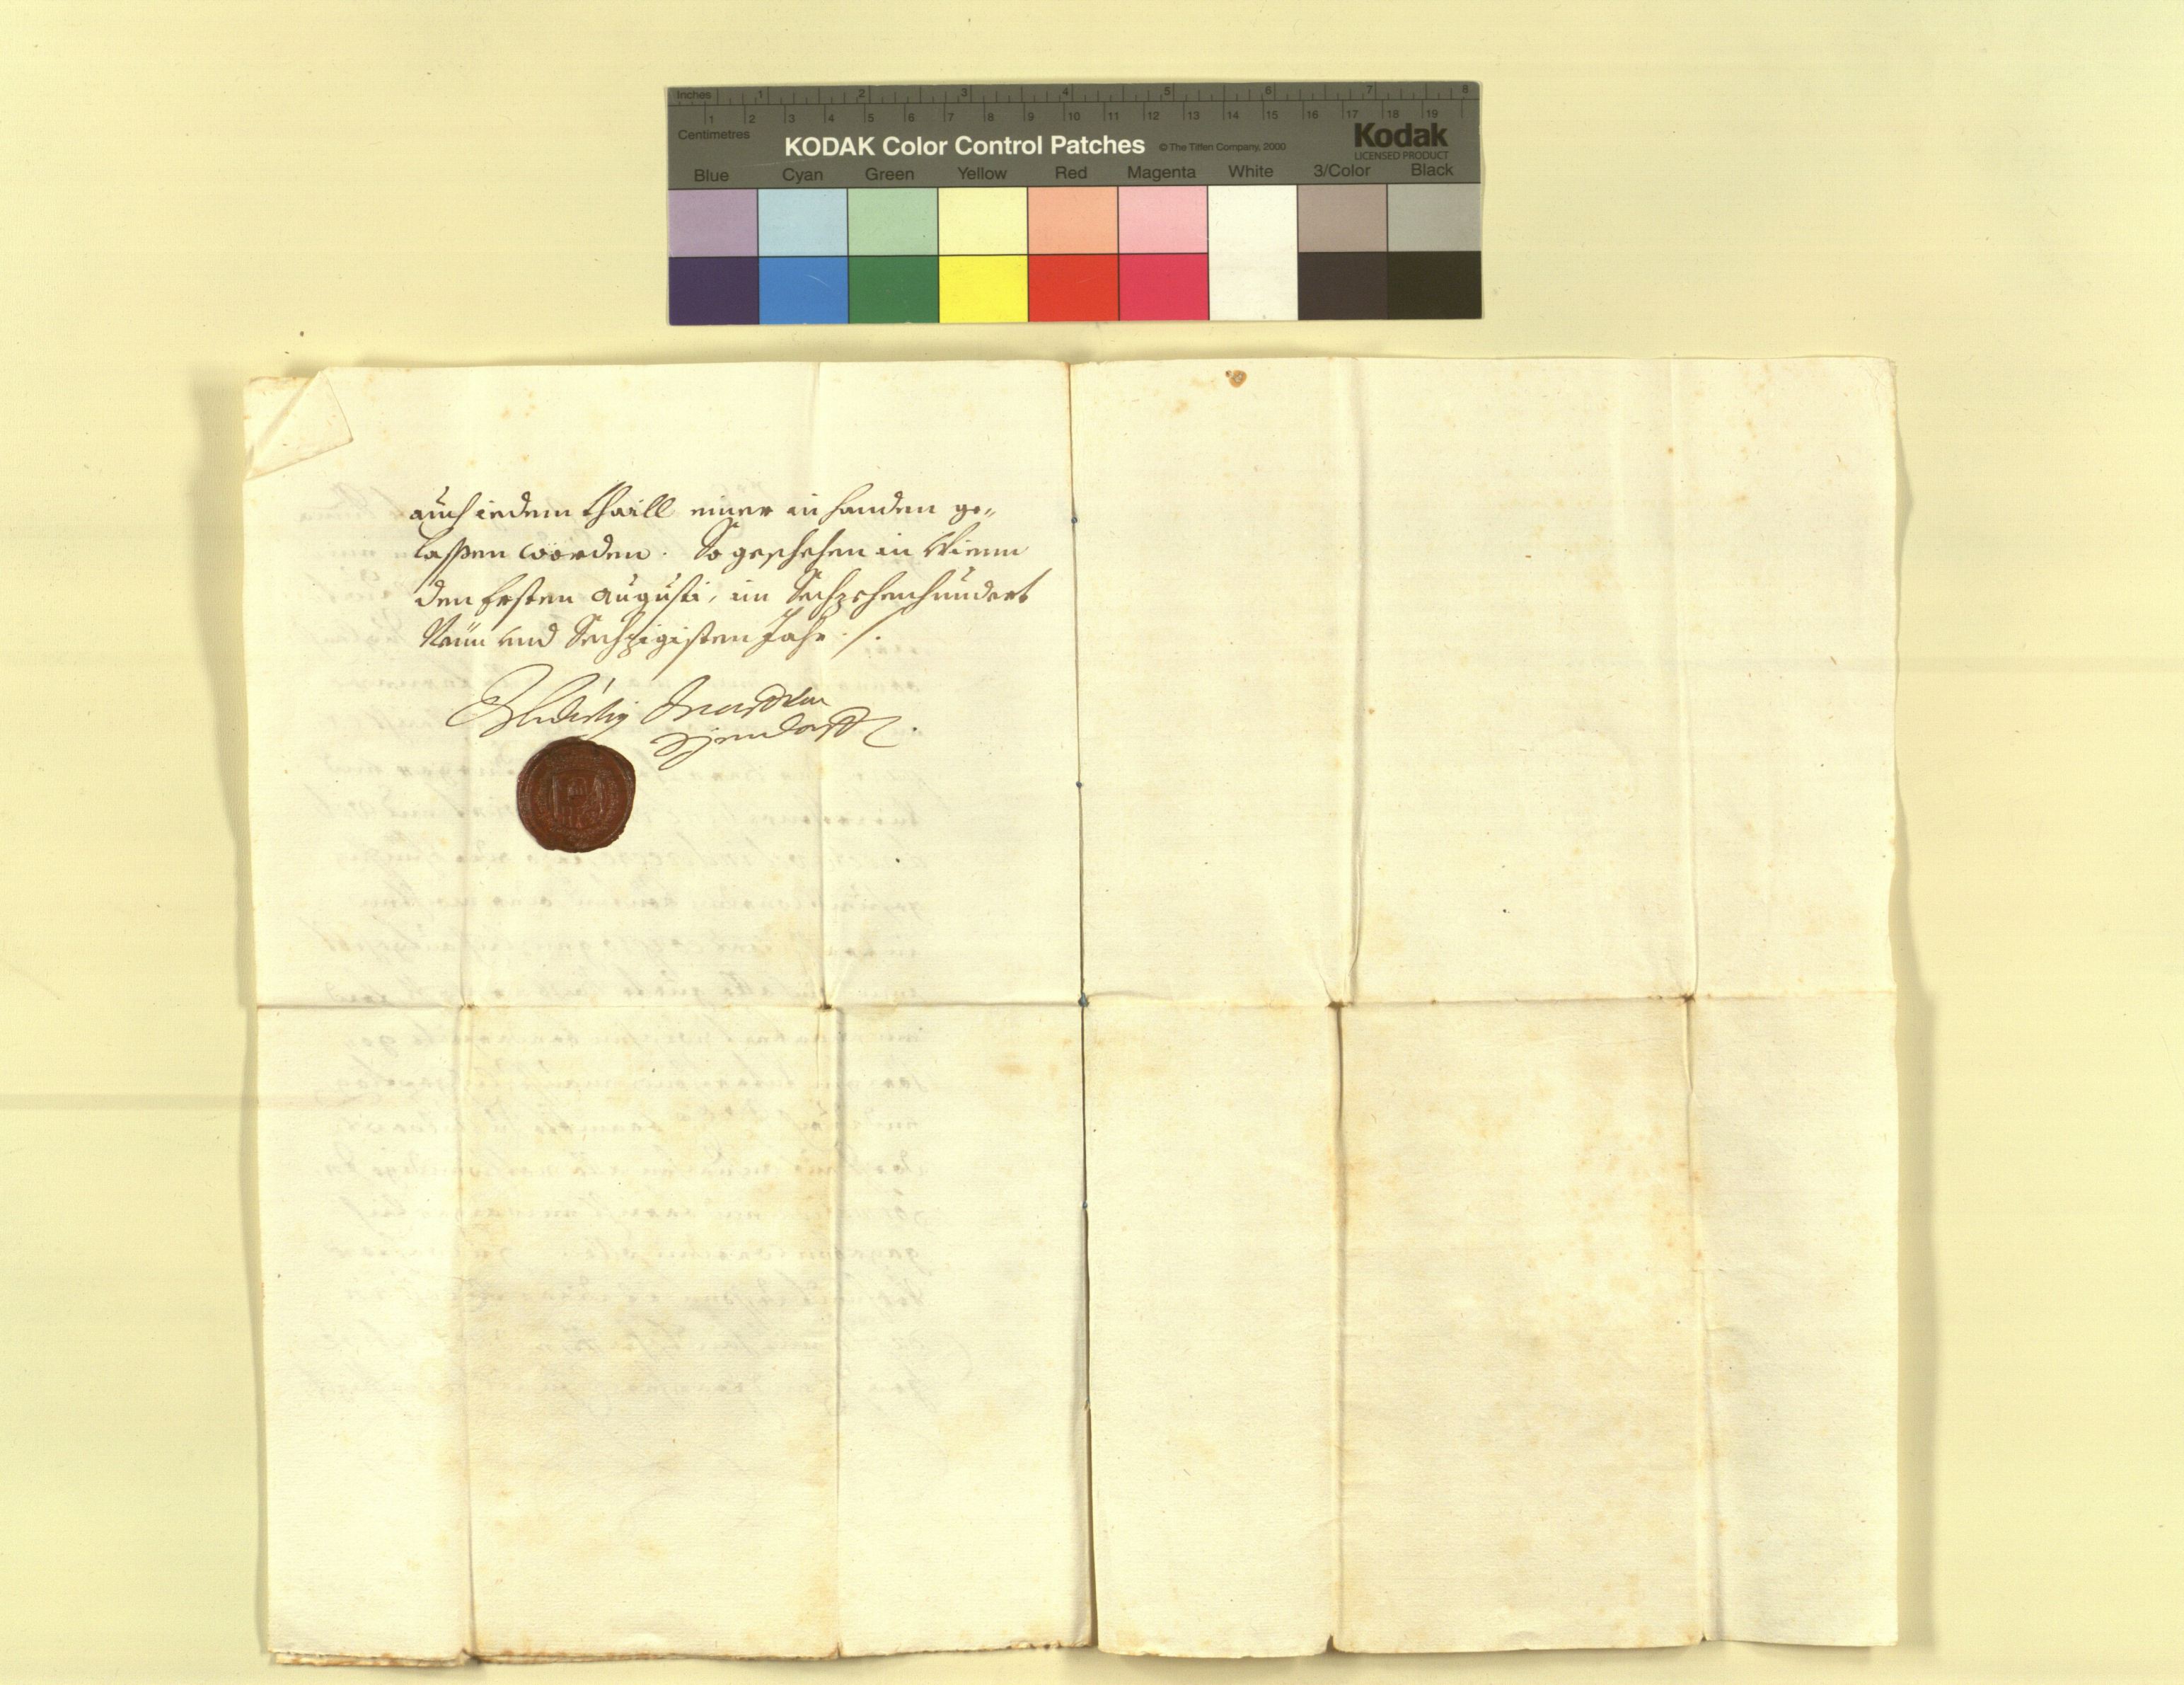 Inches 1 2 3 4 5 6 7 8
1 2 3 4 5 6 7 8 9 10 11 12 13 14 15 16 17 18 19
Centimetres
KODAK Color Control Patches © The Tiffen Company, 2000 Kodak
LICENSED PRODUCT
Blue Cyan Green Yellow Red Magenta White 3/Color Black
auch iedem thaill einer in handen ge„
lassen worden. So geschehen in Wienn
den Ersten Augusti, im Sechzehenhundert
Neün und Sechzigisten Jahr ./.